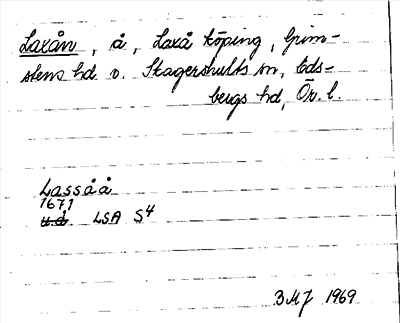 Laxån, å, Laxå köping, Grim-
stens hd o. Skagershults sn, Eds-
bergs hd, Ör. l.
Lassåå
1671
u.d. LSA S4
3 MJ 1969